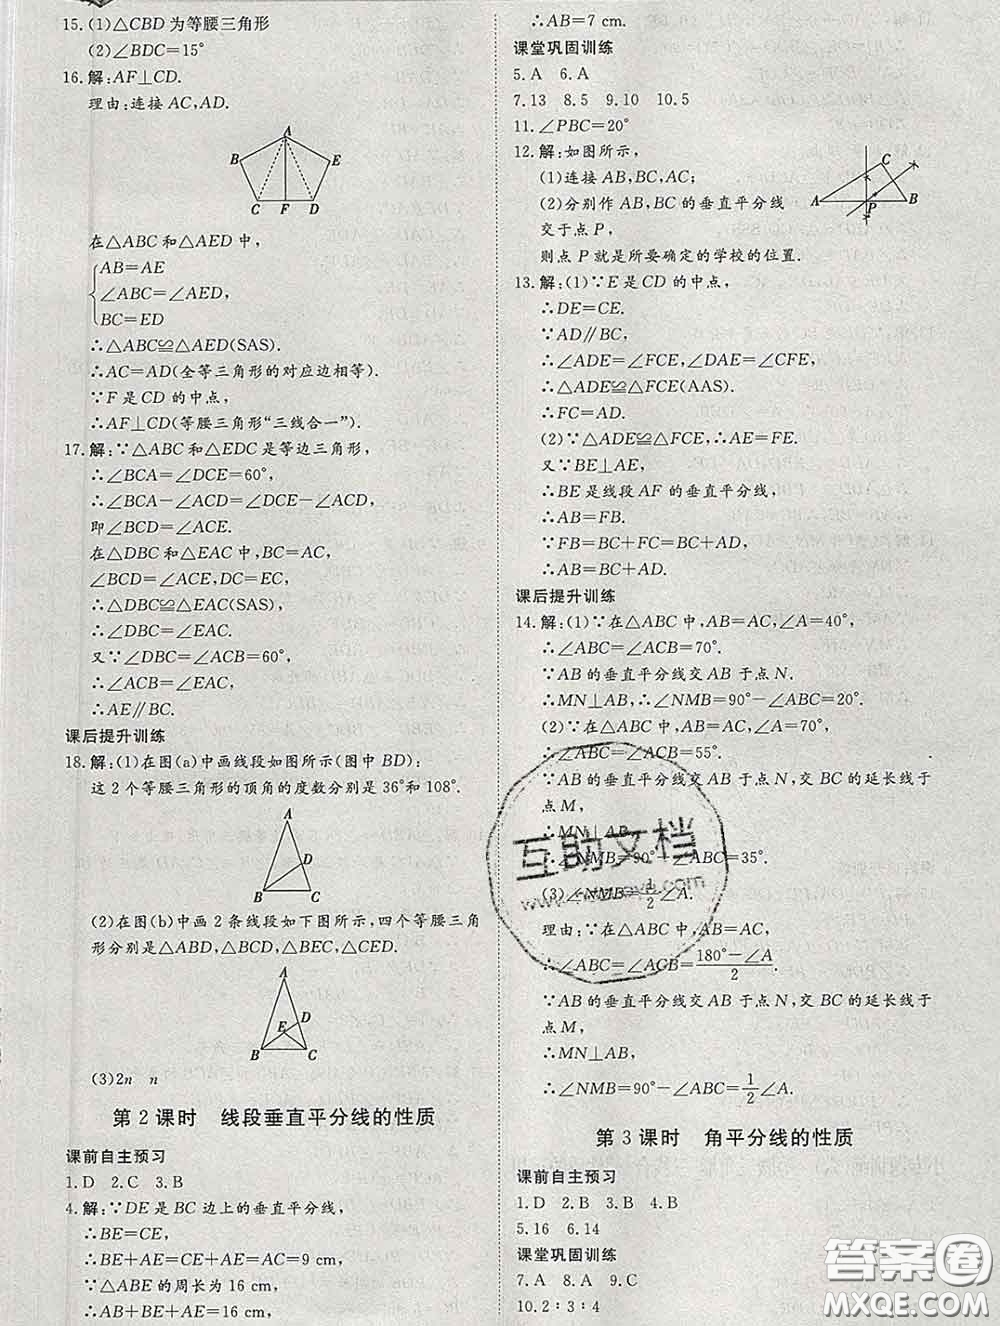 15.(1)△CBD为等腰三角形
(2)∠BDC=15°
16.解:AF⊥CD.
理由:连接AC,AD.
A
B
E
C
F
D
在△ABC和△AED中,
AB=AE
∠ABC=∠AED,
BC=ED
∴△ABC≌△AED(SAS).
∴AC=AD(全等三角形的对应边相等).
∵F是CD的中点,
∴AF⊥CD(等腰三角形“三线合一”).
17.解:∵△ABC和△EDC是等边三角形,
∴∠BCA=∠DCE=60°,
∴∠BCA-∠ACD=∠DCE-∠ACD,
即∠BCD=∠ACE.
在△DBC和△EAC中,BC=AC,
∠BCD=∠ACE,DC=EC,
∴△DBC≌△EAC(SAS).
∴∠DBC=∠EAC.
又∵∠DBC=∠ACB=60°,
∴∠ACB=∠EAC,
∴AE∥BC.
课后提升训练
18.解:(1)在图(a)中画线段如图所示(图中BD);
这2个等腰三角形的顶角的度数分别是36°和108°.
A
D
B
C
(2)在图(b)中画2条线段如下图所示,四个等腰三角
形分别是△ABD,△BCD,△BEC,△CED.
A
D
E
B
C
(3)2n n
第2课时 线段垂直平分线的性质
课前自主预习
1.D 2.C 3.B
4.解:∵DE是BC边上的垂直平分线,
∴BE=CE,
∴BE+AE=CE+AE=AC=9 cm,
∵△ABE的周长为16 cm,
∴AB+BE+AE=16 cm,
∴AB=7 cm.
课堂巩固训练
5.A 6.A
7.13 8.5 9.10 10.5
11.∠PBC=20°
12.解:如图所示,
(1)连接AB,BC,AC;
(2)分别作AB,BC的垂直平分线
交于点P,
则点P就是所要确定的学校的位置.
C
A
P
B
13.解:(1)∵E是CD的中点,
∴DE=CE.
∵AD∥BC,
∴∠ADE=∠FCE,∠DAE=∠CFE,
∴△ADE≌△FCE(AAS).
∴FC=AD.
(2)∵△ADE≌△FCE,∴AE=FE.
又∵BE⊥AE,
∴BE是线段AF的垂直平分线,
∴AB=FB.
∵FB=BC+FC=BC+AD,
∴AB=BC+AD.
课后提升训练
14.解:(1)∵在△ABC中,AB=AC,∠A=40°,
∴∠ABC=∠ACB=70°.
∵AB的垂直平分线交AB于点N.
∴MN⊥AB,∴∠NMB=90°-∠ABC=20°.
(2)∵在△ABC中,AB=AC,∠A=70°,
∴∠ABC=∠ACB=55°.
∵AB的垂直平分线交AB于点N,交BC的延长线于
点M,
∴MN⊥AB,
∴∠NMB=90°-∠ABC=35°.
(3)∠NMB=1/2∠A.
理由:∵在△ABC中,AB=AC,
∴∠ABC=∠ACB=180°-∠A/2.
∵AB的垂直平分线交AB于点N,交BC的延长线于
点M,
∴MN⊥AB,
∴∠NMB=90°-∠ABC=1/2∠A.
第3课时 角平分线的性质
课前自主预习
1.D 2.B 3.B 4.B
5.16 6.14
课堂巩固训练
7.A 8.A 9.C
10.2∶3∶4
互助文档
答案圈
MXQE.COM